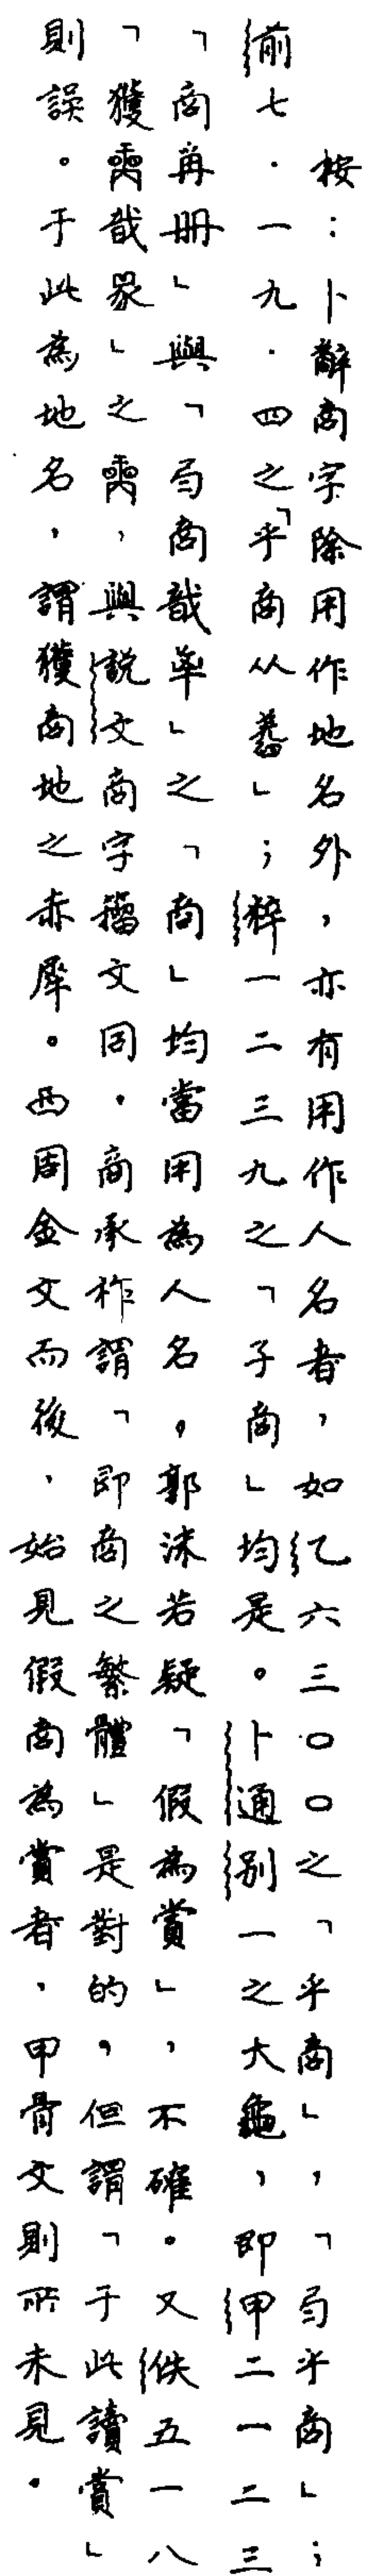 按：卜辭商字除用作地名外，亦有用作人名者，如乙六三〇〇之「乎商」，「弜乎商」；
前七·一九·四之「乎商从𦰩」；粹一二三九之「子商」均是。卜通別一之大龜，即甲二一二三
「商爯冊」與「弜商戠𠦪」之「商」均當用為人名，郭沫若疑「假為賞」，不確。又佚五一八
「獲𧶜戠兕」之𧶜，與說文商字籀文同，商承祚謂「即商之繁體」是對的，但謂「于此讀賞」
則誤。于此為地名，謂獲商地之赤犀。西周金文而後，始見假商為賞者，甲骨文則所未見。